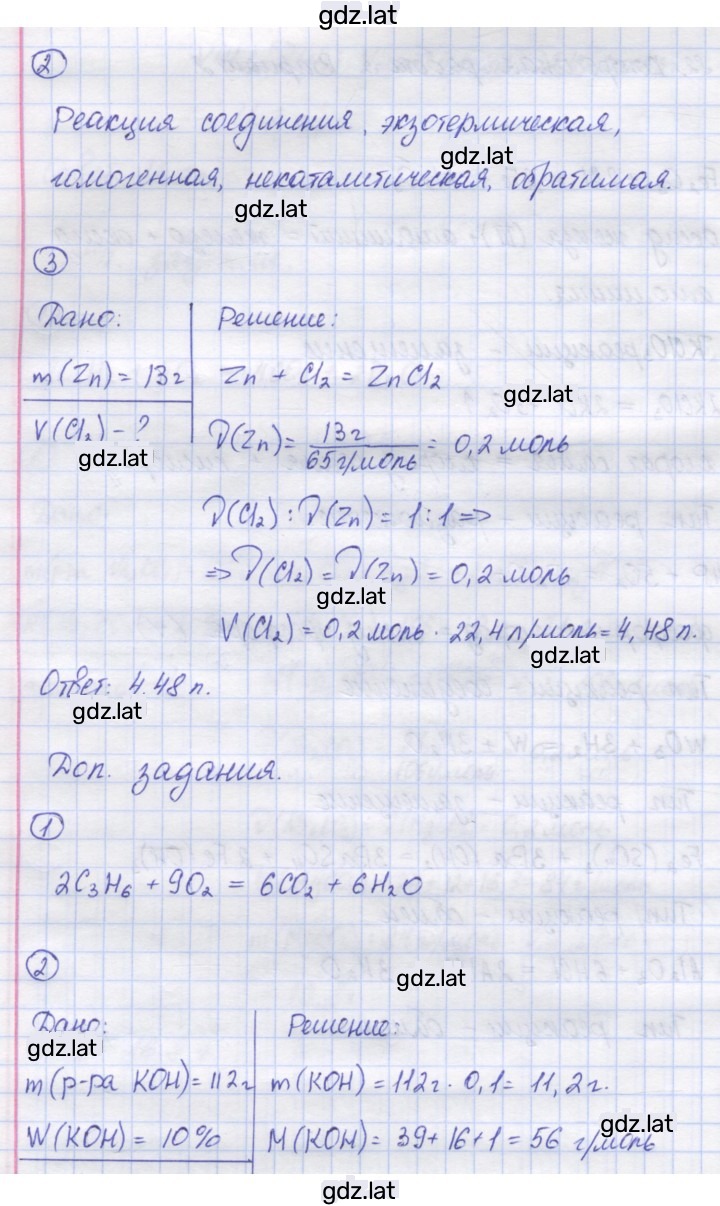 gdz.lat
2
Реакция соединения, экзотермическая,
gdz.lat
гомогенная, некаталитическая, обратимая.
gdz.lat
3
Дано: Решение:
m(Zn) = 13 г Zn + Cl₂ = ZnCl₂
gdz.lat
V(Cl₂) - ? ν(Zn) = 13 г / 65 г/моль = 0,2 моль
gdz.lat
ν(Cl₂) : ν(Zn) = 1 : 1 =>
=> ν(Cl₂) = ν(Zn) = 0,2 моль
gdz.lat
V(Cl₂) = 0,2 моль · 22,4 л/моль = 4,48 л.
gdz.lat
Ответ: 4.48 л.
gdz.lat
Доп. задания.
1
2C₃H₆ + 9O₂ = 6CO₂ + 6H₂O
2
gdz.lat
Дано: Решение:
gdz.lat
m(р-ра KOH) = 112 г m(KOH) = 112 г · 0,1 = 11,2 г.
gdz.lat
W(KOH) = 10% M(KOH) = 39 + 16 + 1 = 56 г/моль
gdz.lat